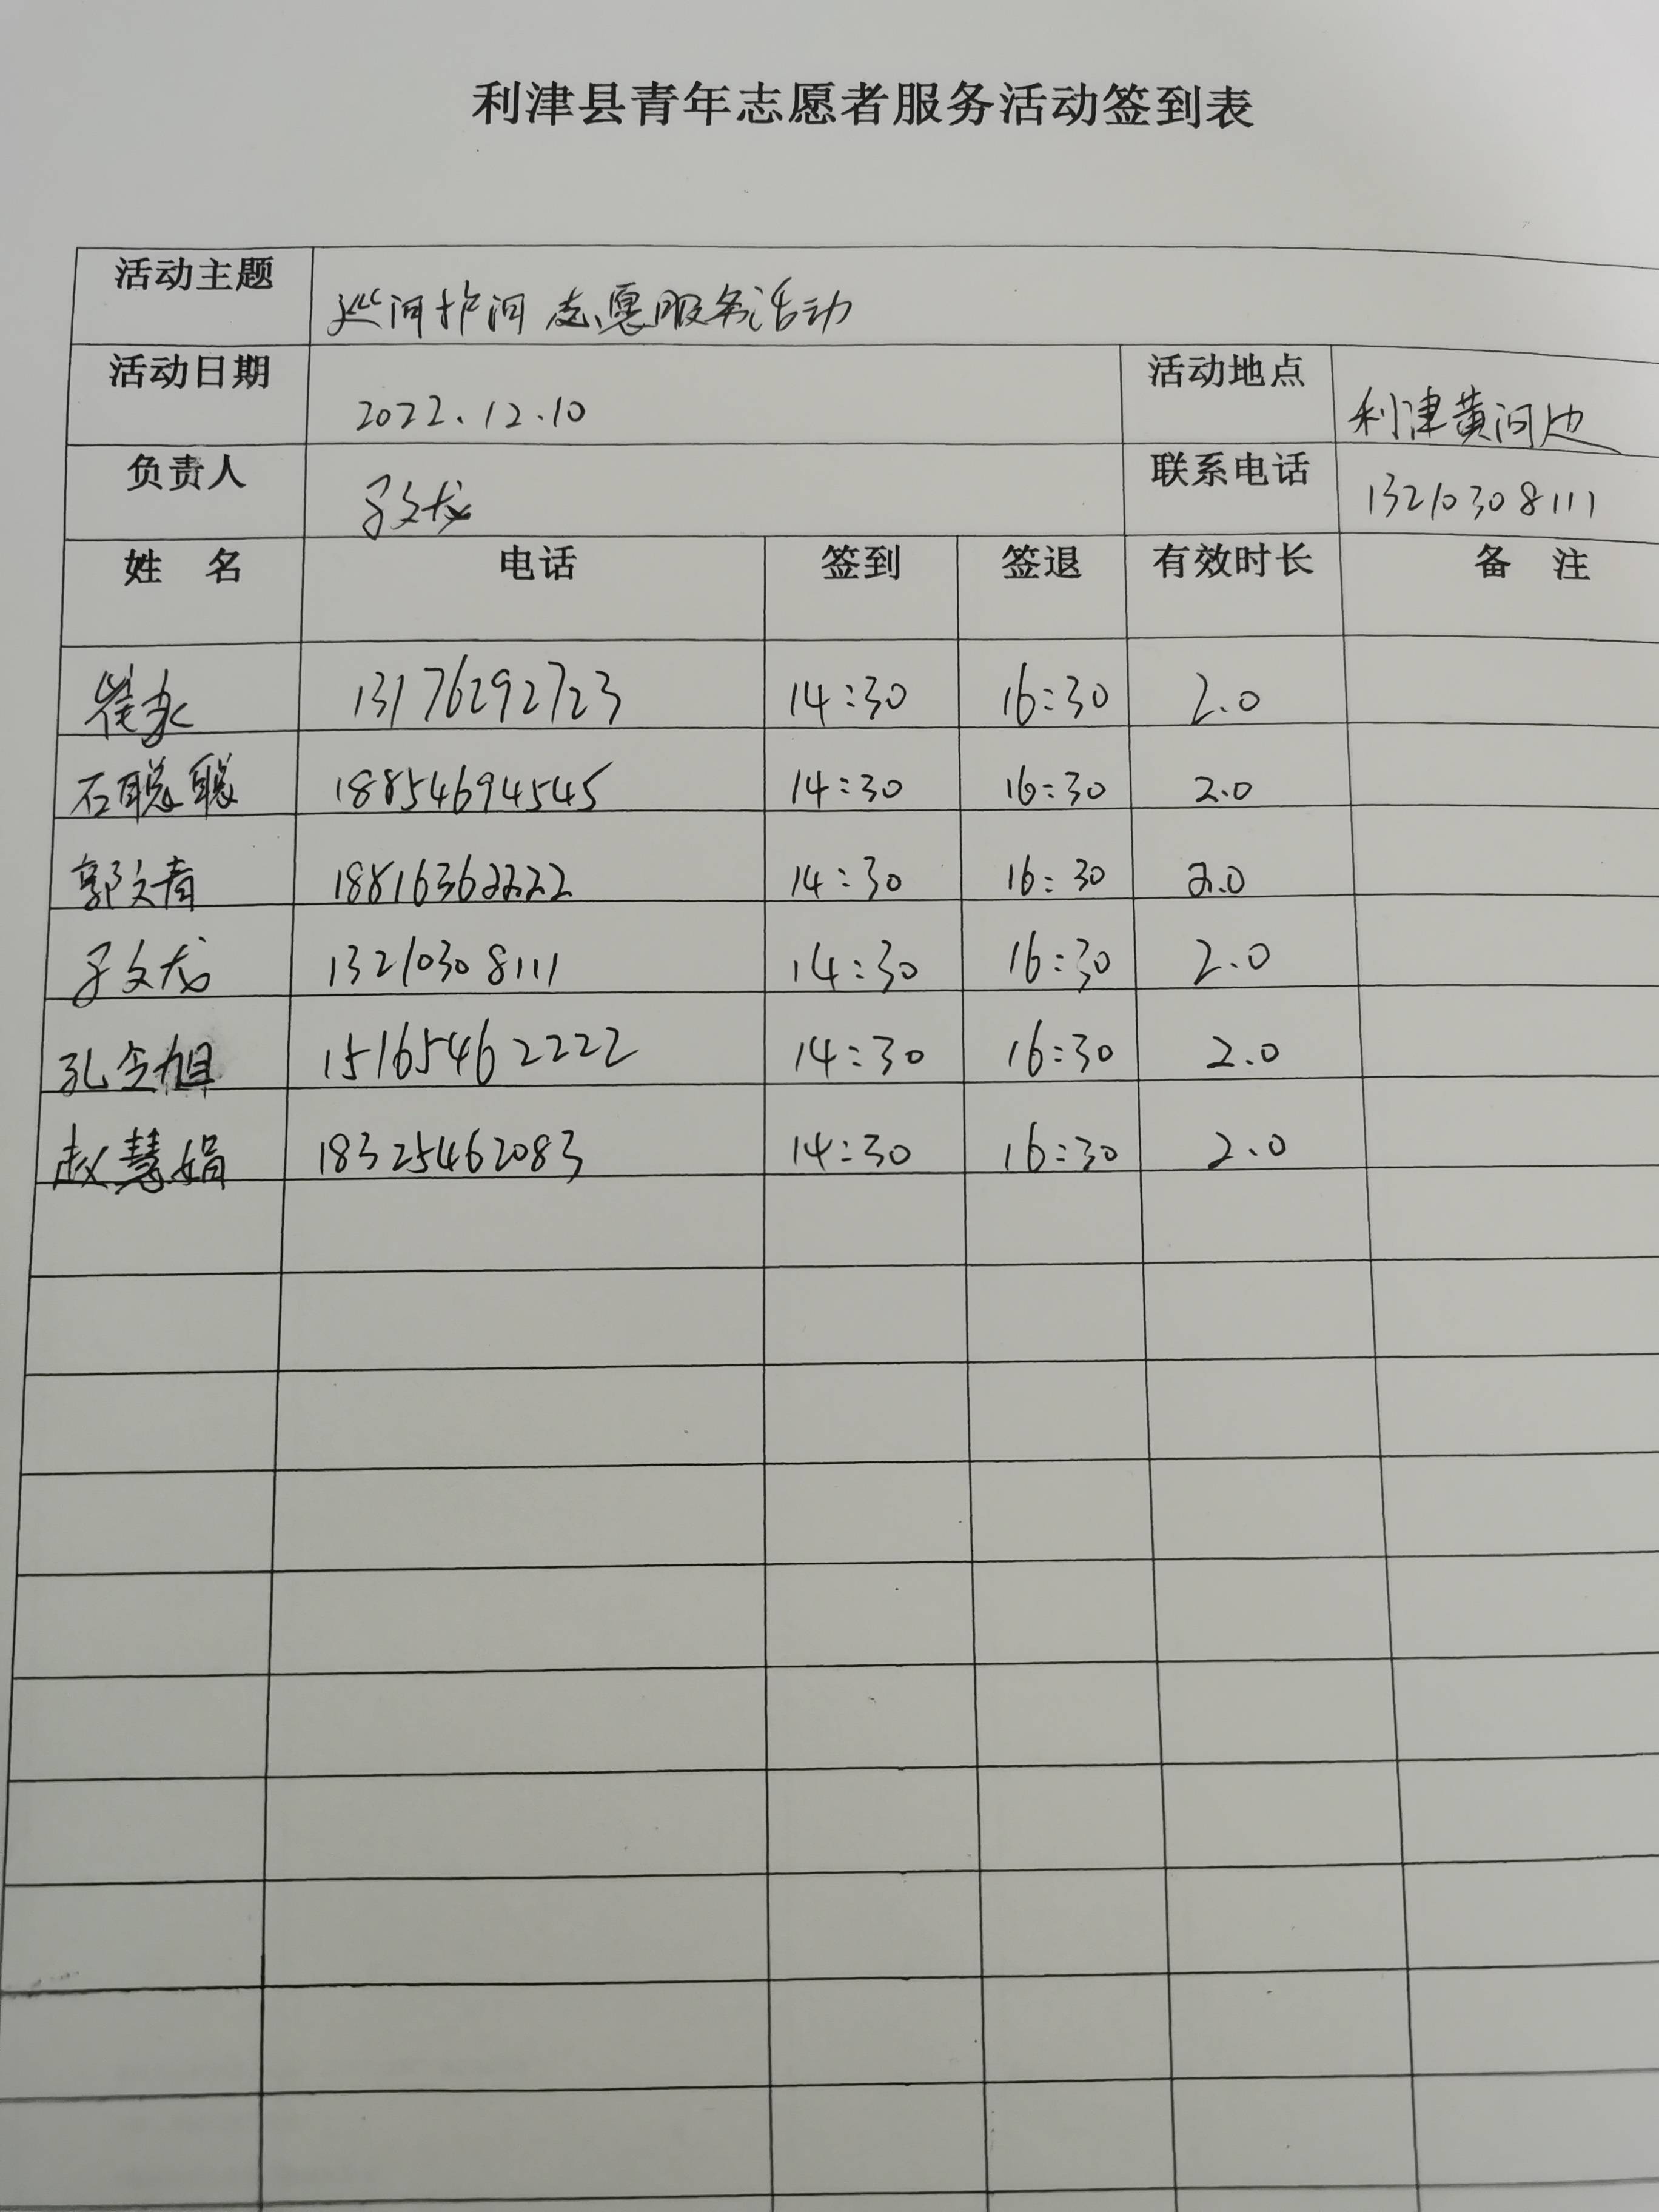 利津县青年志愿者服务活动签到表
活动主题 巡河护河志愿服务活动
活动日期 2022.12.10 活动地点 利津黄河边
负责人 文龙 联系电话 13210308111
姓 名 电话 签到 签退 有效时长 备 注
崔永 13176292723 14:30 16:30 2.0
石聪聪 18854694545 14:30 16:30 2.0
郭文青 18816362222 14:30 16:30 2.0
文龙 13210308111 14:30 16:30 2.0
孔令旭 15165462222 14:30 16:30 2.0
赵慧娟 18325462083 14:30 16:30 2.0